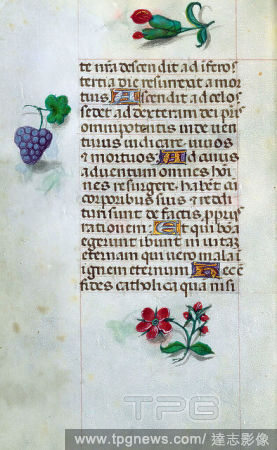 te nr̄a descendit ad īferos
tertia die resurrexit a mor
tuis Ascendit ad celos
sedet ad dexteram dei pr̄is
omnipotentis inde ven
turus iudicāe viuos
& mortuos Ad cuius
aduentum omnes hoī
nes resurgere habēt cū
corporibus suis & reddi
turi sunt de factis ꝓpriis
rationem Et qui boā
egerunt ibunt in uitaȝ
eternam qui uero mala ī
ignem eternum Hec ē
fides catholica quā nisi
TPG
www.tpgnews.com/達志影像